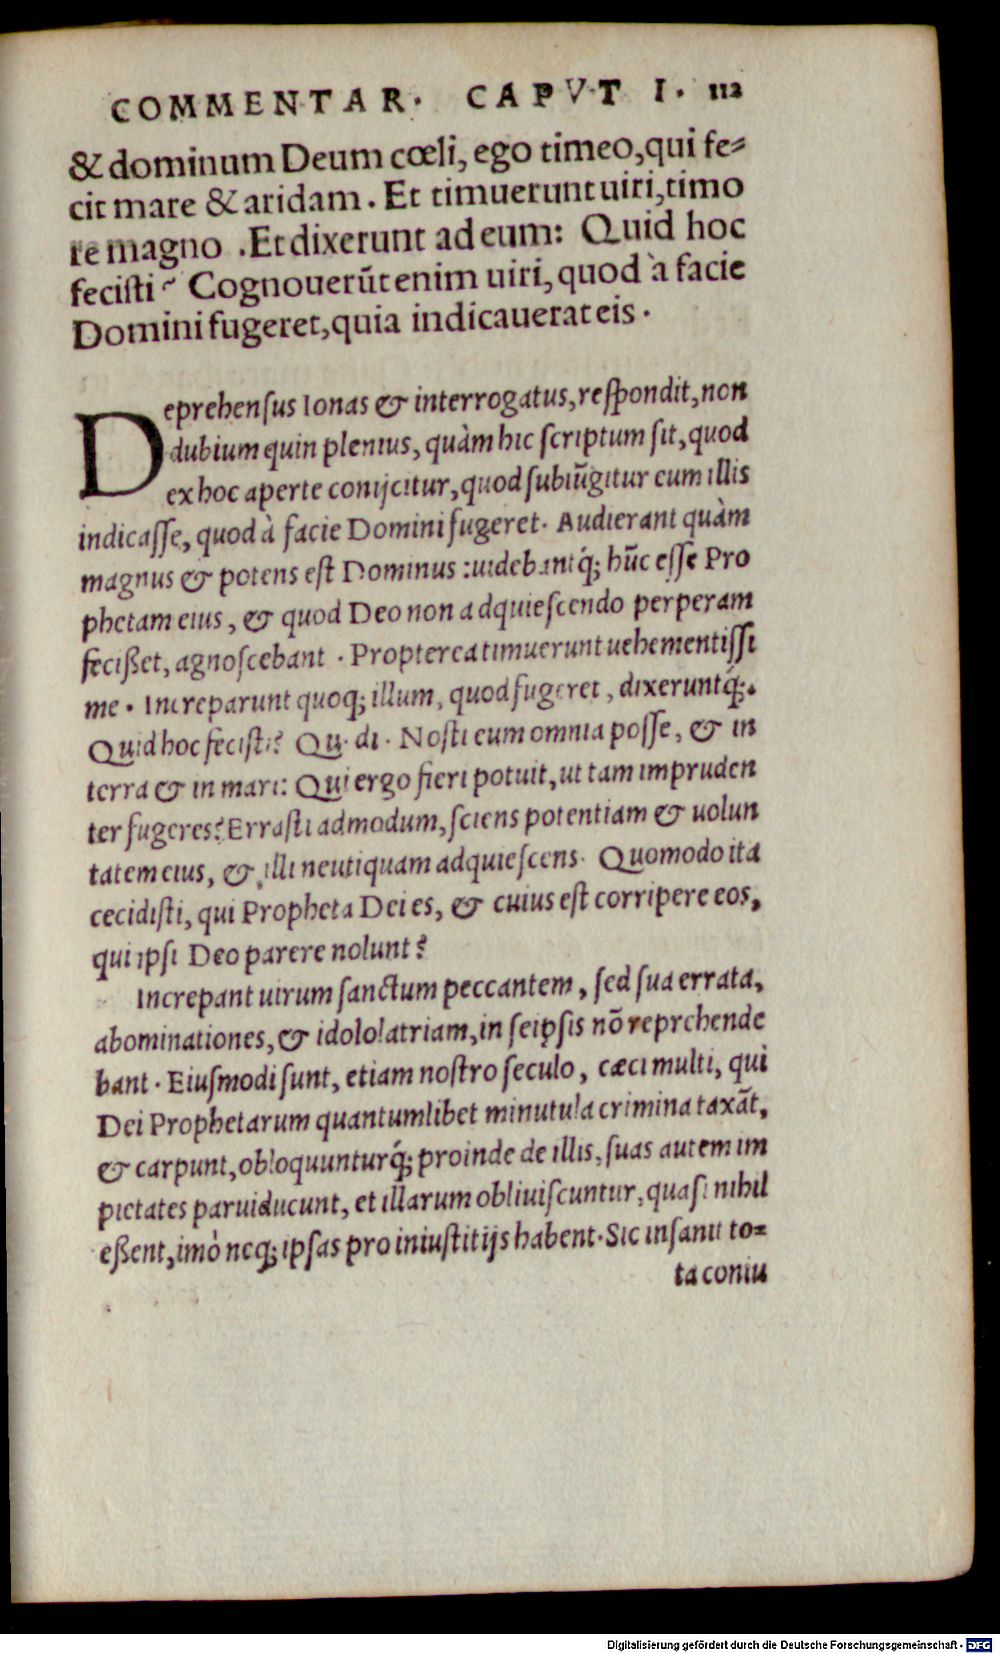 COMMENTAR. CAPVT I. 112
& dominum Deum cœli, ego timeo, qui fe⸗
cit mare & aridam. Et timuerunt uiri, timo
re magno. Et dixerunt ad eum: Quid hoc
fecisti? Cognouerũt enim uiri, quod à facie
Domini fugeret, quia indicauerat eis.
Deprehensus Ionas & interrogatus, respondit, non
dubium quin plenius, quàm hic scriptum sit, quod
ex hoc aperte conijcitur, quod subiũgitur eum illis
indicasse, quod à facie Domini fugeret. Audierant quàm
magnus & potens est Dominus: uidebantq́; hũc esse Pro
phetam eius, & quod Deo non adquiescendo perperam
fecißet, agnoscebant. Propterea timuerunt uehementissi
me. Increparunt quoq; illum, quod fugeret, dixeruntq́;.
Quid hoc fecisti? Qu. di. Nosti eum omnia posse, & in
terra & in mari: Qui ergo fieri potuit, ut tam impruden
ter fugeres? Errasti admodum, sciens potentiam & uolun
tatem eius, & illi neutiquam adquiescens. Quomodo ita
cecidisti, qui Propheta Dei es, & cuius est corripere eos,
qui ipsi Deo parere nolunt?
Increpant uirum sanctum peccantem, sed sua errata,
abominationes, & idololatriam, in seipsis nõ reprehende
bant. Eiusmodi sunt, etiam nostro seculo, cæci multi, qui
Dei Prophetarum quantumlibet minutula crimina taxãt,
& carpunt, obloquunturq́; proinde de illis, suas autem im
pietates paruiducunt, et illarum obliuiscuntur, quasi nihil
eßent, imò neq; ipsas pro iniustitijs habent. Sic insanit to⸗
ta coniu
Digitalisierung gefördert durch die Deutsche Forschungsgemeinschaft - DFG